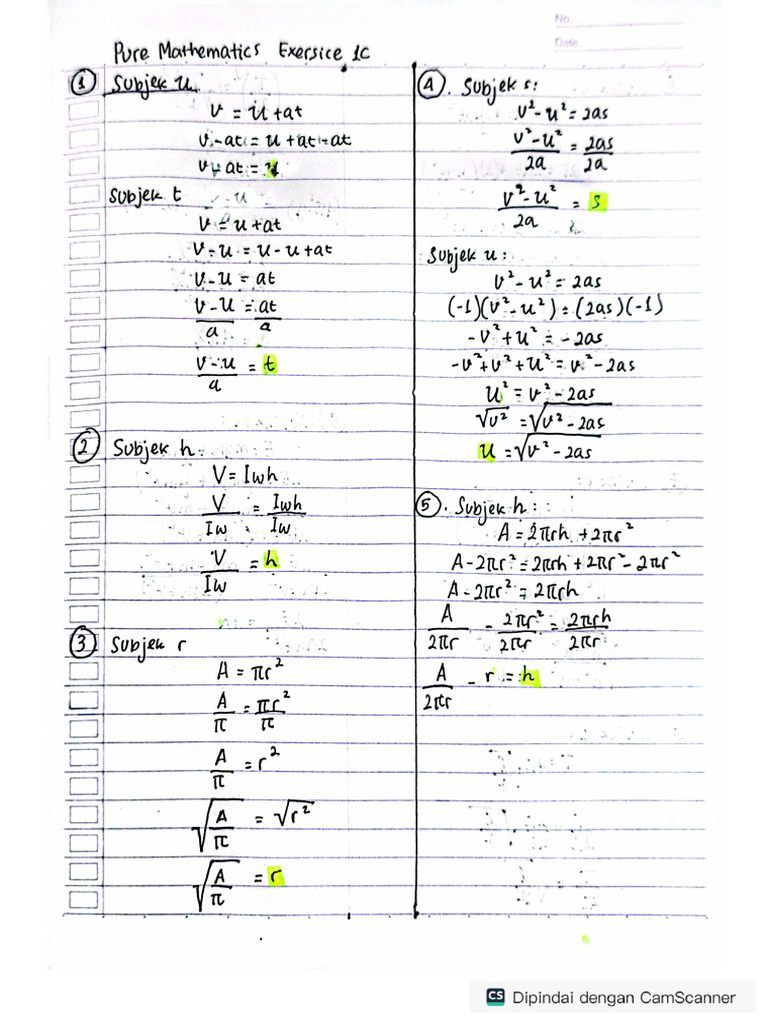 No.
Date.
Pure Mathematics Exersice 1C
① Subjek u:
v = u + at
v - at = u + at - at
v - at = u
Subjek t
v = u + at
v - u = u - u + at
v - u = at
v - u / a = at / a
v - u / a = t
② Subjek h:
V = Iwh
V / Iw = Iwh / Iw
V / Iw = h
③ Subjek r
A = πr²
A / π = πr² / π
A / π = r²
√(A / π) = √r²
√(A / π) = r
④. Subjek s:
v² - u² = 2as
v² - u² / 2a = 2as / 2a
v² - u² / 2a = s
Subjek u:
v² - u² = 2as
(-1)(v² - u²) = (2as)(-1)
-v² + u² = -2as
-v² + v² + u² = v² - 2as
u² = v² - 2as
√u² = √v² - 2as
u = √v² - 2as
⑤. Subjek h:
A = 2πrh + 2πr²
A - 2πr² = 2πrh + 2πr² - 2πr²
A - 2πr² = 2πrh
A / 2πr - 2πr² / 2πr = 2πrh / 2πr
A / 2πr - r = h
CS Dipindai dengan CamScanner